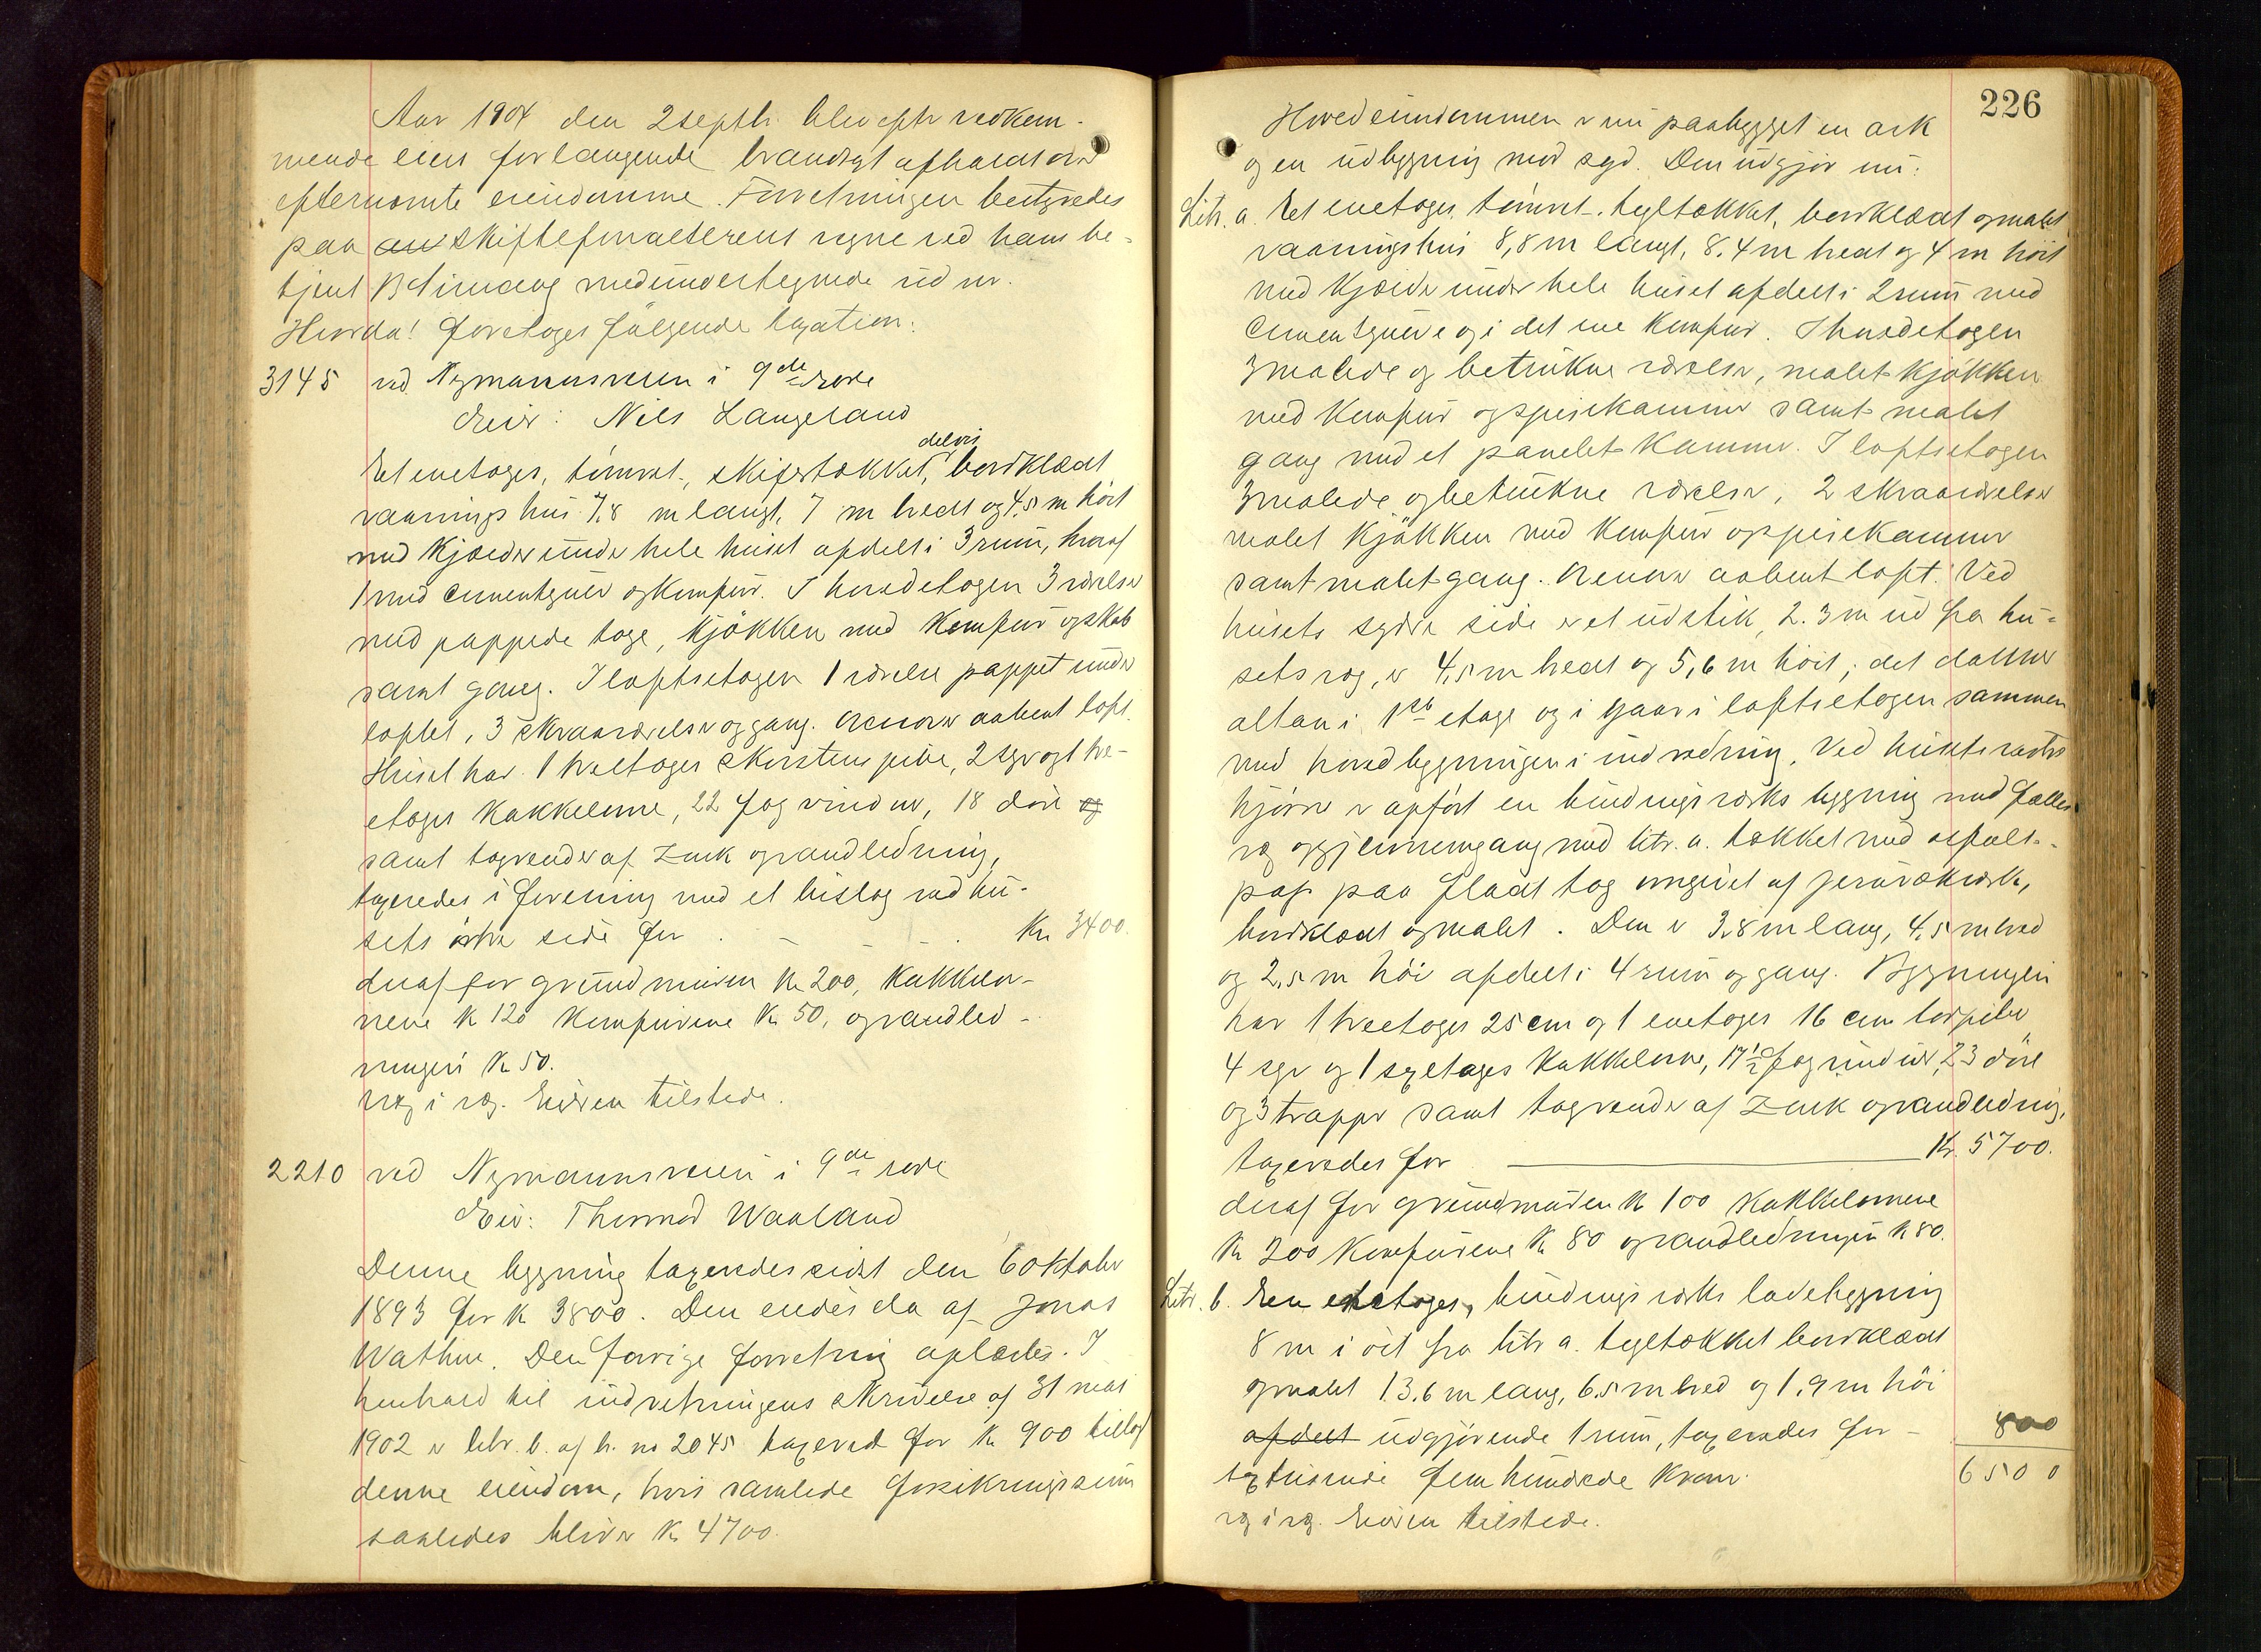 Aar 1904 den 2 septb. blev efter vedkom-
mende eiers forlangende brandtaxt afholdt over
efternævnte eiendomme. Forretningen bestyredes
paa skifteforvalterens vegne ved hans be-
tjent med undertegnede vidner.
Hvorda! foretoges følgende taxation:
3145 ved Nymannsveien i 9de rode
Eier: Nils Langeland
Et enetages, tømret, skifertækket, delvis bordklædt
vaaningshus 7,8 m langt, 7 m bredt og 4,5 m høit
med kjælder under hele huset afdelt i 3 rum, hvoraf
1 med cementgulv og komfur. I hovedetagen 3 værelser
med pappede tage, kjøkken med komfur og skab
samt gang. I loftsetagen 1 værelse pappet under
loftet, 3 skraaværelser og gang. Ovenover aabent loft.
Huset har 1 toetages skorstenspibe, 2 syv og 1 tre-
etages kakkelovne, 22 fag vinduer, 18 døre og
samt tagrender af zink og vandledning,
taxeredes i forening med et bislag ved hu-
sets østre side for - - - Kr. 3400.
deraf for grundmuren Kr 200, kakkelov-
nene Kr 120 komfurene Kr 50, og vandled-
ningen Kr 50.
væg i væg. Eieren tilstede.
2210 ved Nymannsveien i 9de rode
Eier: Thormod Waaland
Denne bygning taxeredes sidst den 6 oktober
1893 for Kr 3800. Den eiedes da af Jonas
Wathne. Den forrige forretning oplæstes. I
henhold til indretningens skrivelse af 31 mai
1902 er litr. b. af br. no 2045 taxeret for Kr 900 tillagt
denne eiendom, hvis samlede forsikringssum
saaledes bliver Kr 4700.
226
Hovedeiendommen er nu paabygget en ark
og en udbygning mod syd. Den udgjør nu:
Litr. a. Et enetages, tømret, tegltækket, bordklædt og malet
vaaningshus 8,8 m langt, 8.4 m bredt og 4 m høit
med kjælder under hele huset afdelt i 2 rum med
cementgulve og i det ene komfur. I hovedetagen
3 malede og betrukne værelser, malet kjøkken
med komfur og spisekammer samt malet
gang med et panelet kammer. I loftsetagen
3 malede og betrukne værelser, 2 skraaværelser
malet kjøkken med komfur og spisekammer
samt malet gang. Ovenover aabent loft. Ved
husets søndre side er et udstik, 2.3 m ud fra hu-
sets væg, er 4,5 m bredt og 5,6 m høit; det danner
altan i 1ste etage og i gaar i loftsetagen sammen
med hovedbygningen i indredning. Ved husets vestre
hjørne er opført en bindingsværks bygning med fælles
væg og gjennemgang med litr. a. tækket med asfalt-
pap paa fladt tag omgivet af
bordklædt og malet. Den er 3.8 m lang, 4,5 m bred
og 2,5 m høi afdelt i 4 rum og gang. Bygningen
har 1 treetages 25 cm og 1 enetages 16 cm
4 syv og 1 sexetages kakkelovne, 17½ fag vinduer, 23 døre
og 3 trapper samt tagrender af zink og vandledning,
taxeredes for Kr. 5700.
deraf for grundmuren Kr 100 kakkelovnene
Kr 200 komfurene Kr 80 og vandledningen Kr 80.
Litr. b. En enetages, bindingsværks ladebygning
8 m i øst fra litr a. tegltækket bordklædt
og malet 13.6 m lang, 6.5 m bred og 1.9 m høi
afdelt udgjørende 1 rum, taxeredes for - 800
sextusinde fem hundrede kroner. 6500
væg i væg. Eieren tilstede.